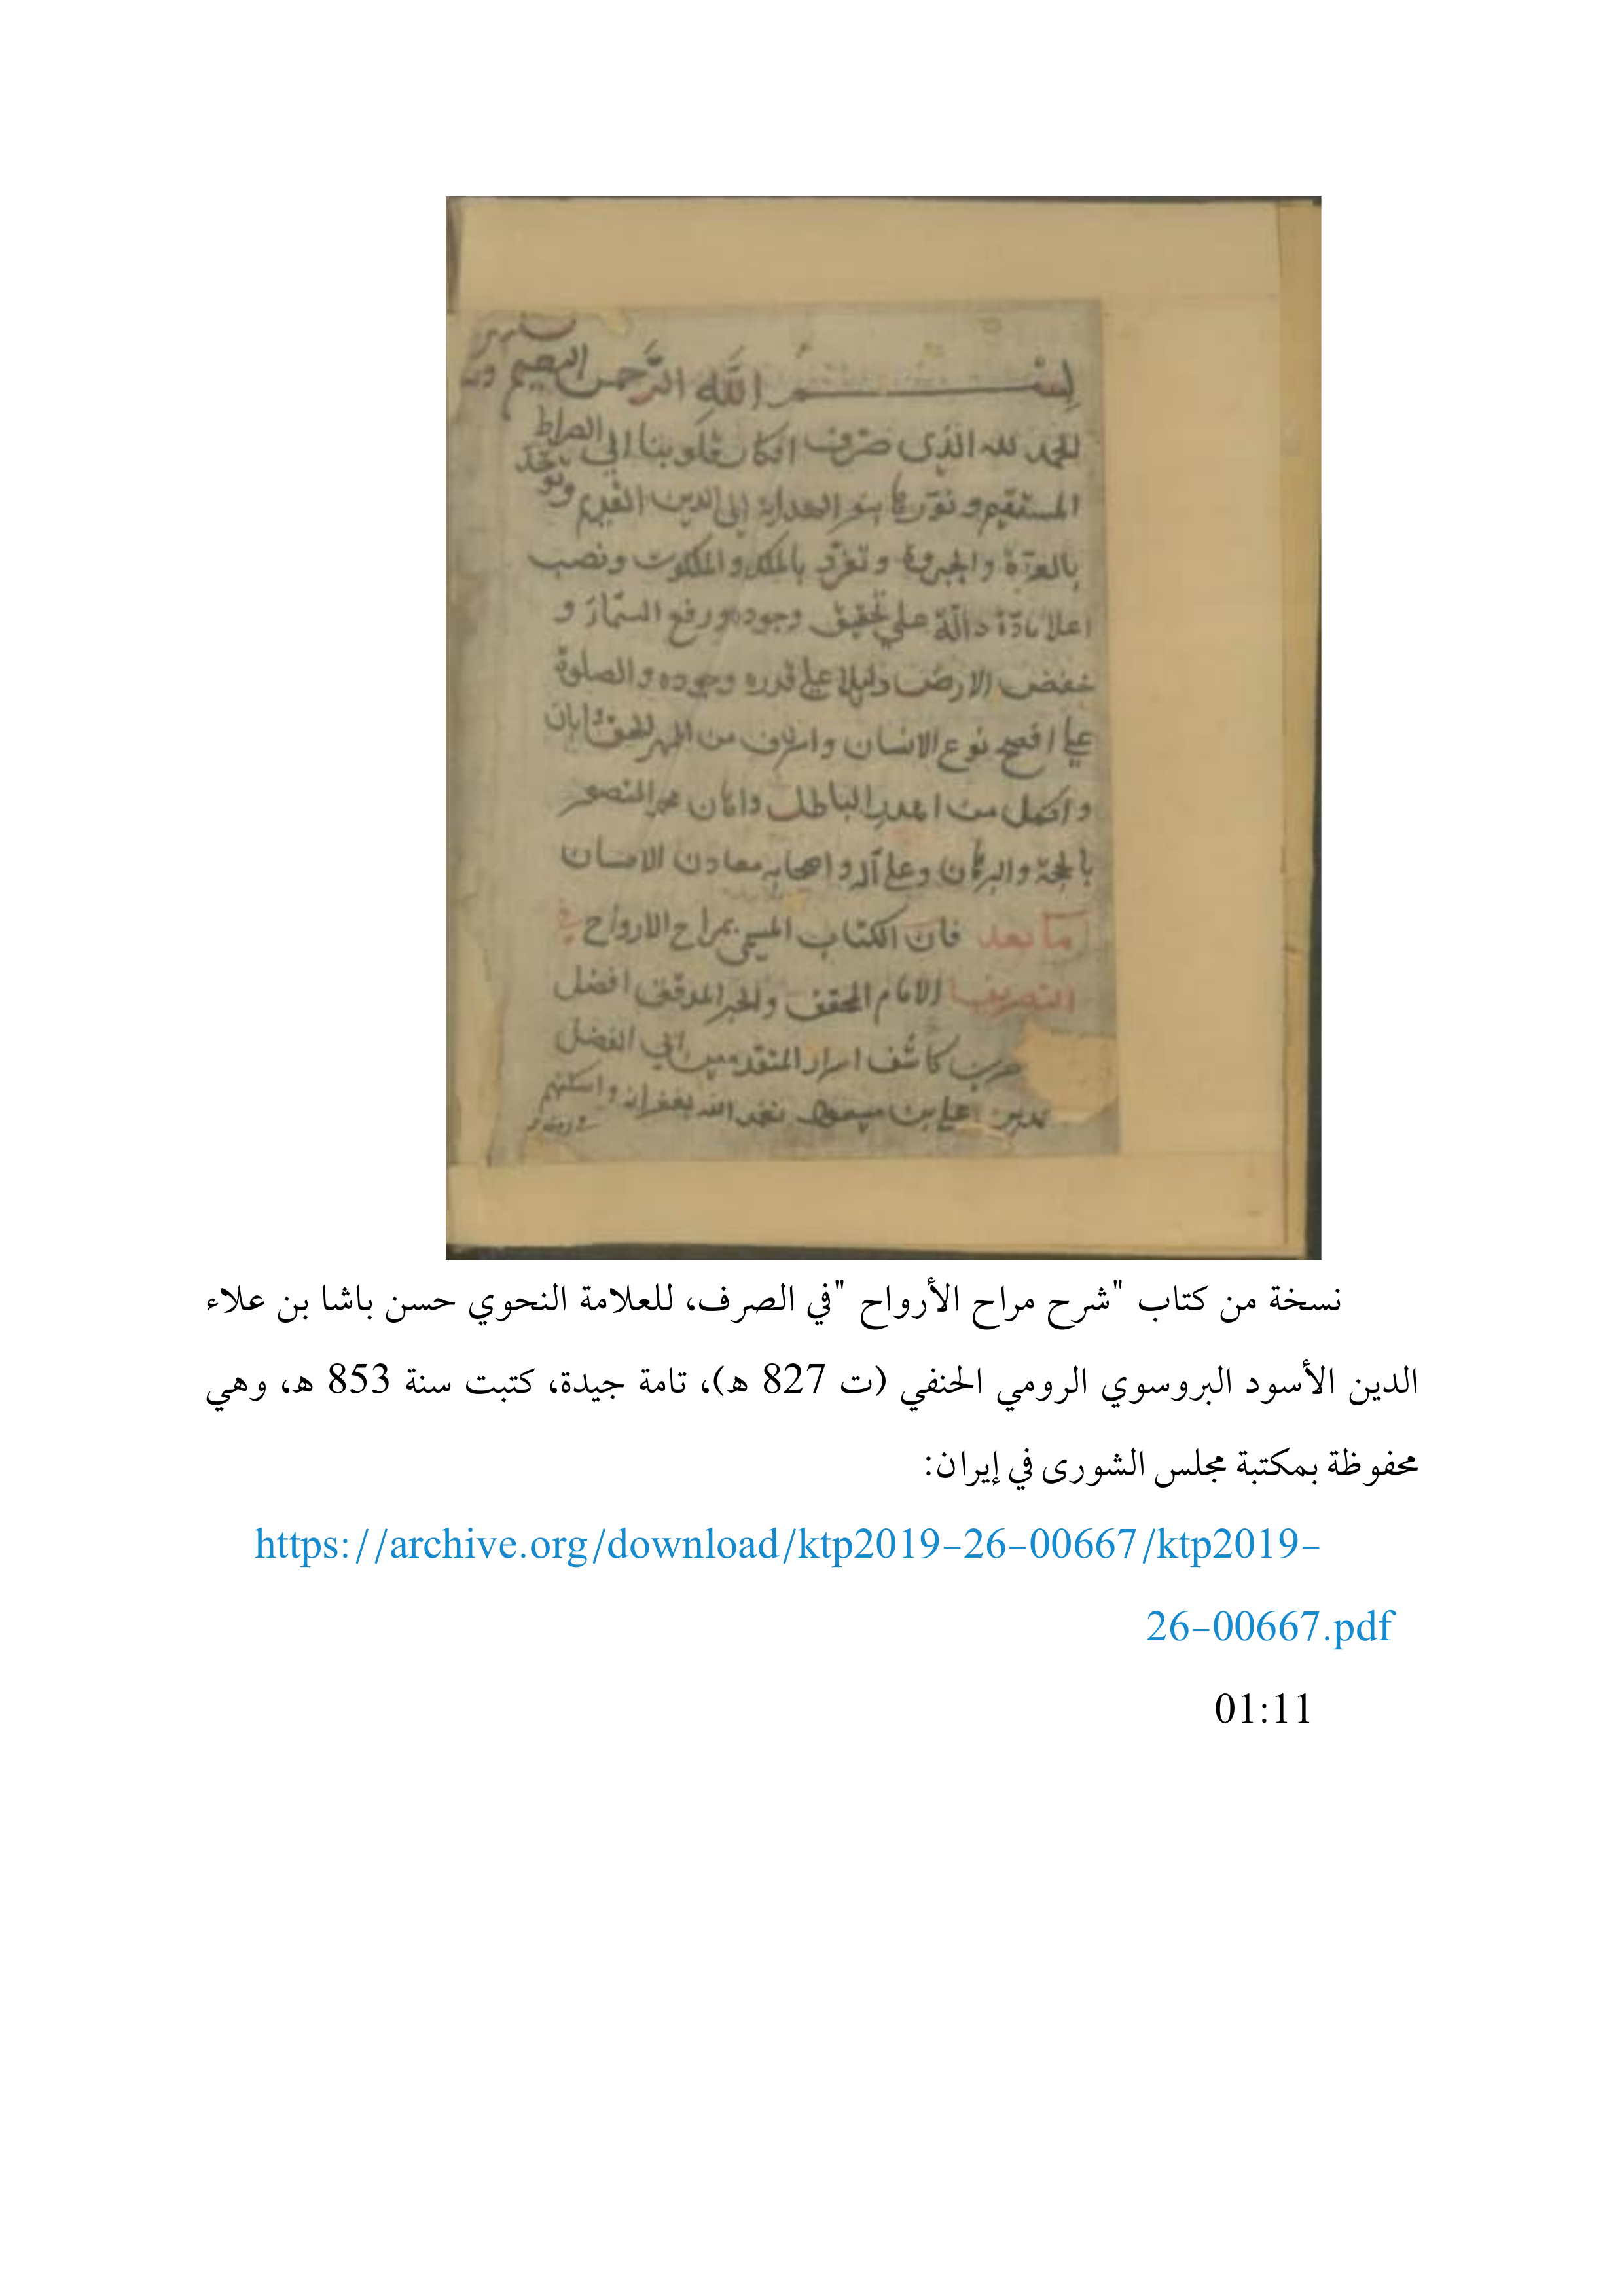 بسم الله الرحمن الرحيم
الحمد لله الذي صرف افكار قلوبنا الى الصراط
المستقيم و نورها بنور الهداية الى الدين القديم وتوحد
بالعزة والجبروة و تفرد بالملك والملكوت ونصب
دالة على تحقيق وجوده ورفع السماء و
خفض الارض دليلا على قدره وجوده و الصلوة
على افصح نوع الانسان واشرف من اظهر الحق وابان
و اكمل من الباطل محمد
بالحجة والبرهان وعلى آله و اصحابه معادن الاحسان
اما بعد فان الكتاب المسمى بمراح الارواح في
التصريف الامام المحقق والحبر المدقق افضل
كاشف اسرار المتقدمين ابي الفضل
على بن مسعود تغمد الله بغفرانه واسكنهم
نسخة من كتاب "شرح مراح الأرواح "في الصرف، للعلامة النحوي حسن باشا بن علاء
الدين الأسود البروسوي الرومي الحنفي (ت 827 هـ)، تامة جيدة، كتبت سنة 853 هـ، وهي
محفوظة بمكتبة مجلس الشورى في إيران:
https://archive.org/download/ktp2019-26-00667/ktp2019-
26-00667.pdf
01:11